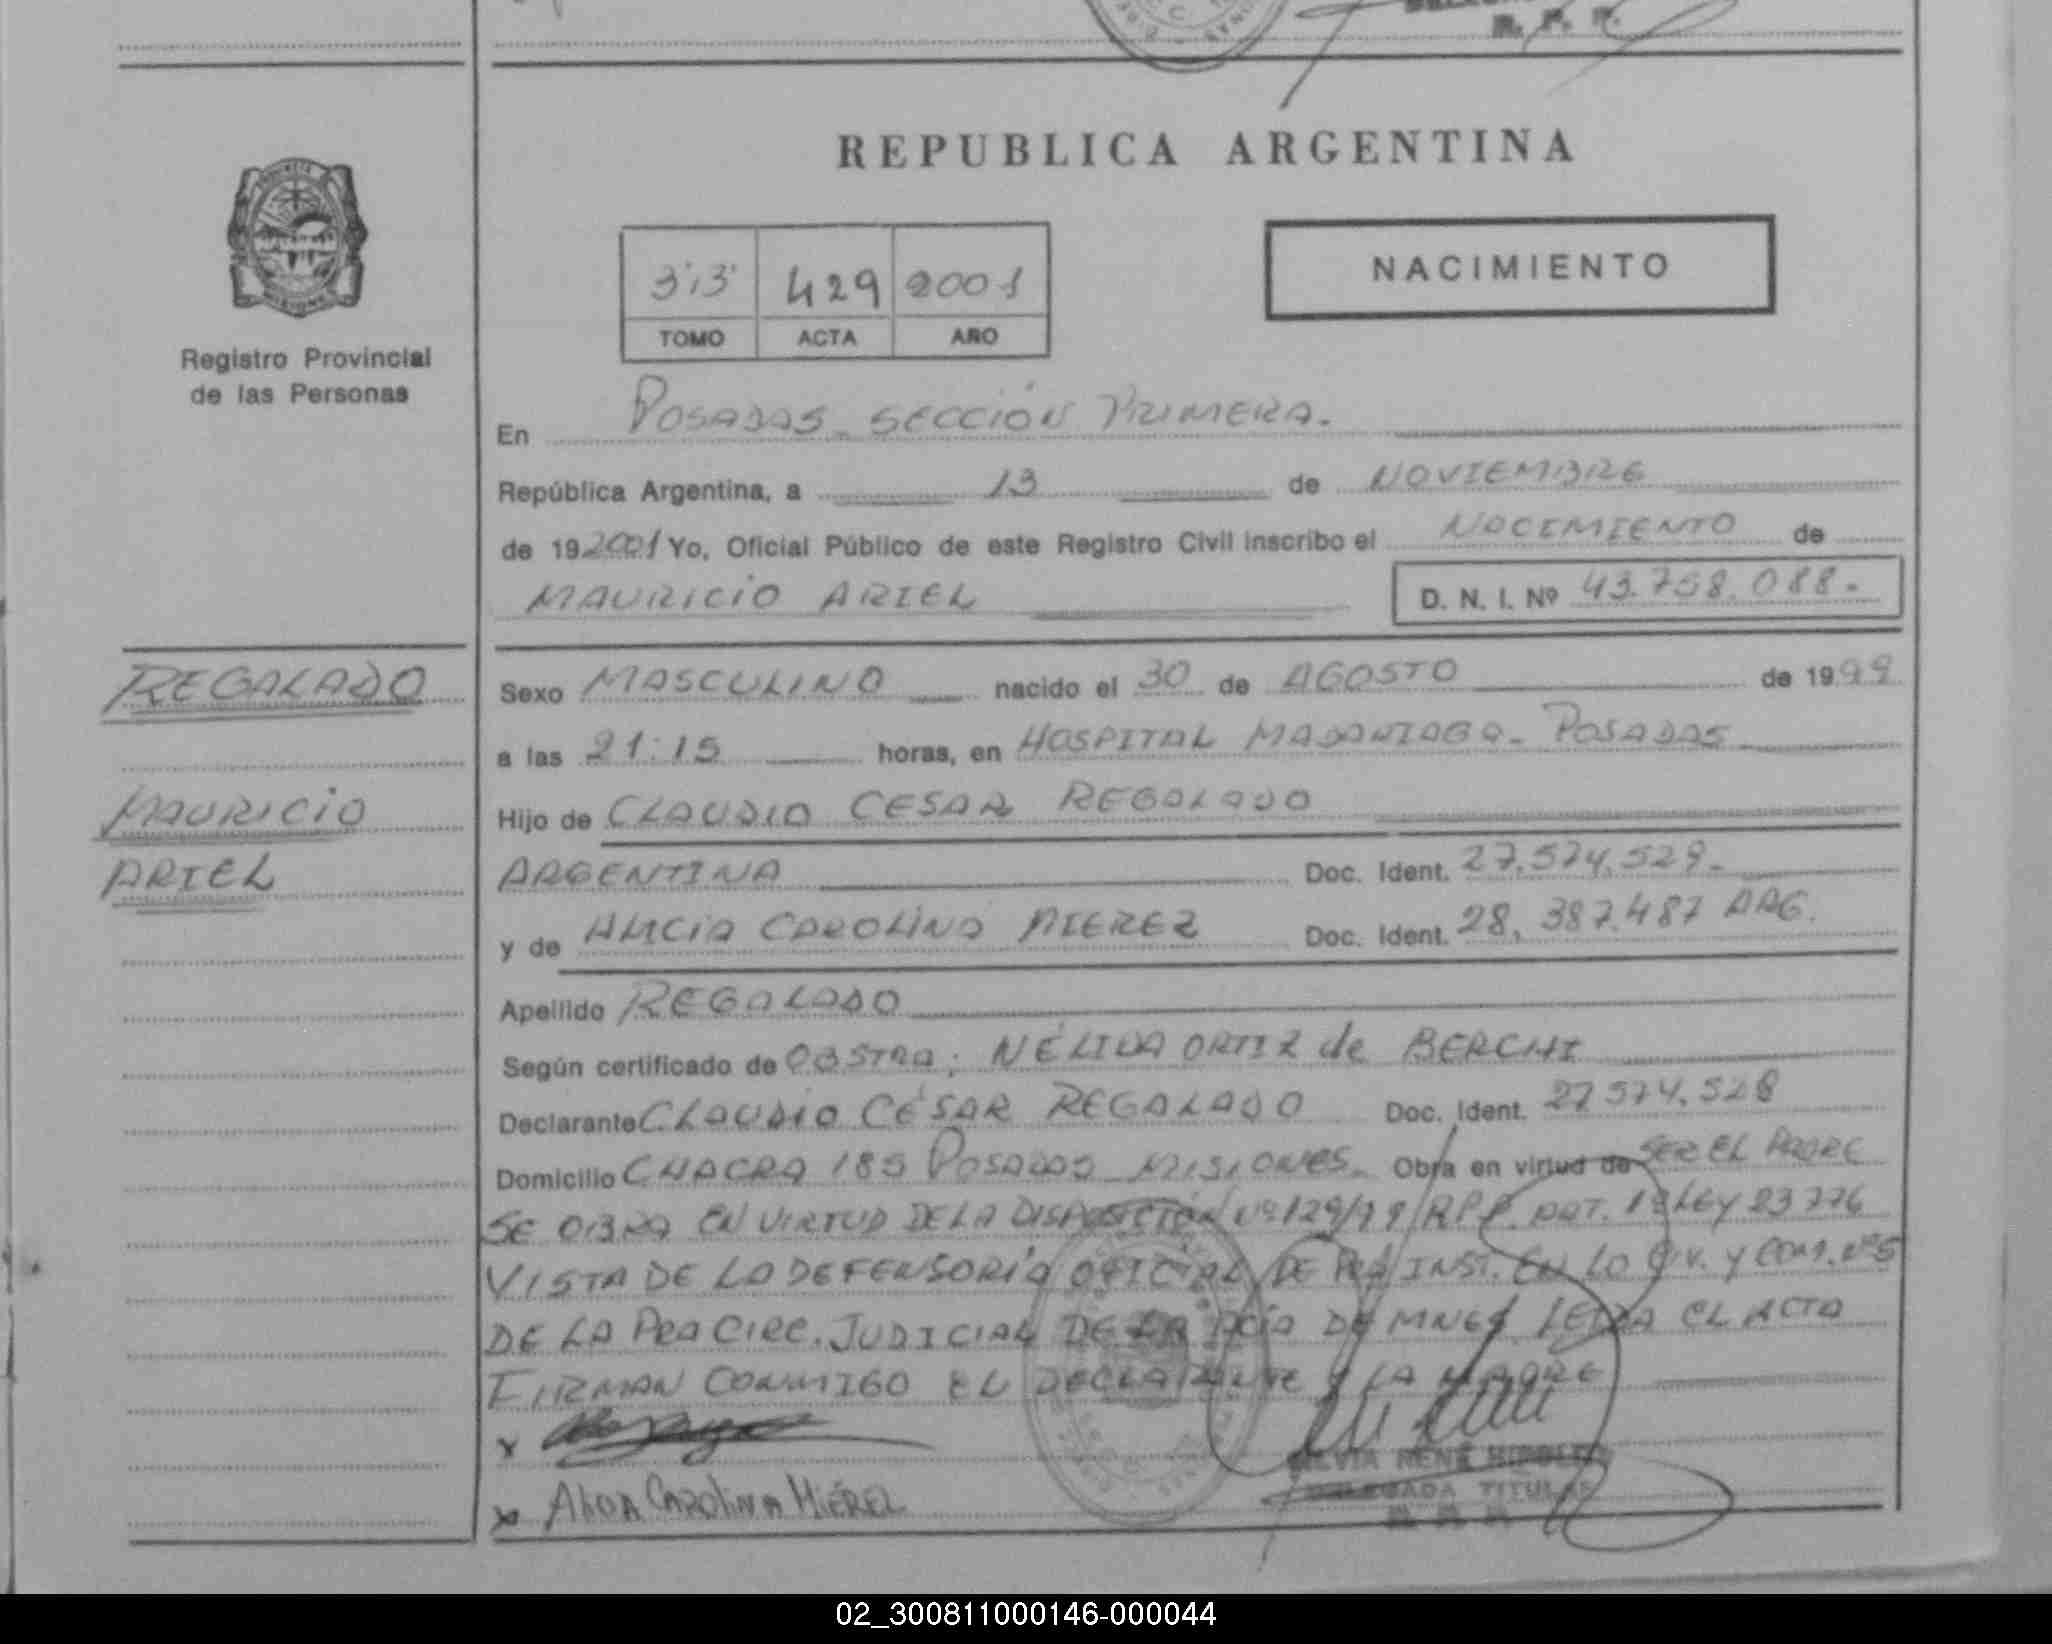 REPUBLICA ARGENTINA
NACIMIENTO
429 2001
TOMO ACTA AÑO
Registro Provincial
de las Personas
En POSADAS - SECCIÓN PRIMERA.
República Argentina, a 13 de NOVIEMBRE
de 19 2001 Yo, Oficial Público de este Registro Civil inscribo el NACIMIENTO de
MAURICIO ARIEL D. N. I. Nº 43.758.088.-
REGALADO
MAURICIO
ARIEL
Sexo MASCULINO nacido el 30 de AGOSTO de 1999
a las 21:15 horas, en HOSPITAL MADARIAGA - POSADAS
Hijo de CLAUDIO CESAR REGALADO
ARGENTINA Doc. Ident. 27.574.529.-
y de ALICIA CAROLINA Doc. Ident. 28.387.487 ARG.
Apellido REGALADO
Según certificado de OBSTRA: NÉLIDA ORTIZ de BERCHI
Declarante CLAUDIO CÉSAR REGALADO Doc. Ident. 27.574.528
Domicilio CHACRA 185 POSADAS - MISIONES. Obra en virtud de SER EL PADRE
SE OBRA EN VIRTUD DE LA DISPOSICIÓN Nº 129/99 RPP. ART. 1º LEY 23776
VISTA DE LA DEFENSORÍA OFICIAL DE INST. EN LO CIV. Y COM. Nº 5
DE LA PRA CIRC. JUDICIAL DE LA PCÍA DE MNES. LEIDA EL ACTA
FIRMAN CONMIGO EL DECLARANTE Y LA MADRE
x
x CAROLINA
SILVIA RENÉ
DELEGADA TITULAR
02_300811000146-000044